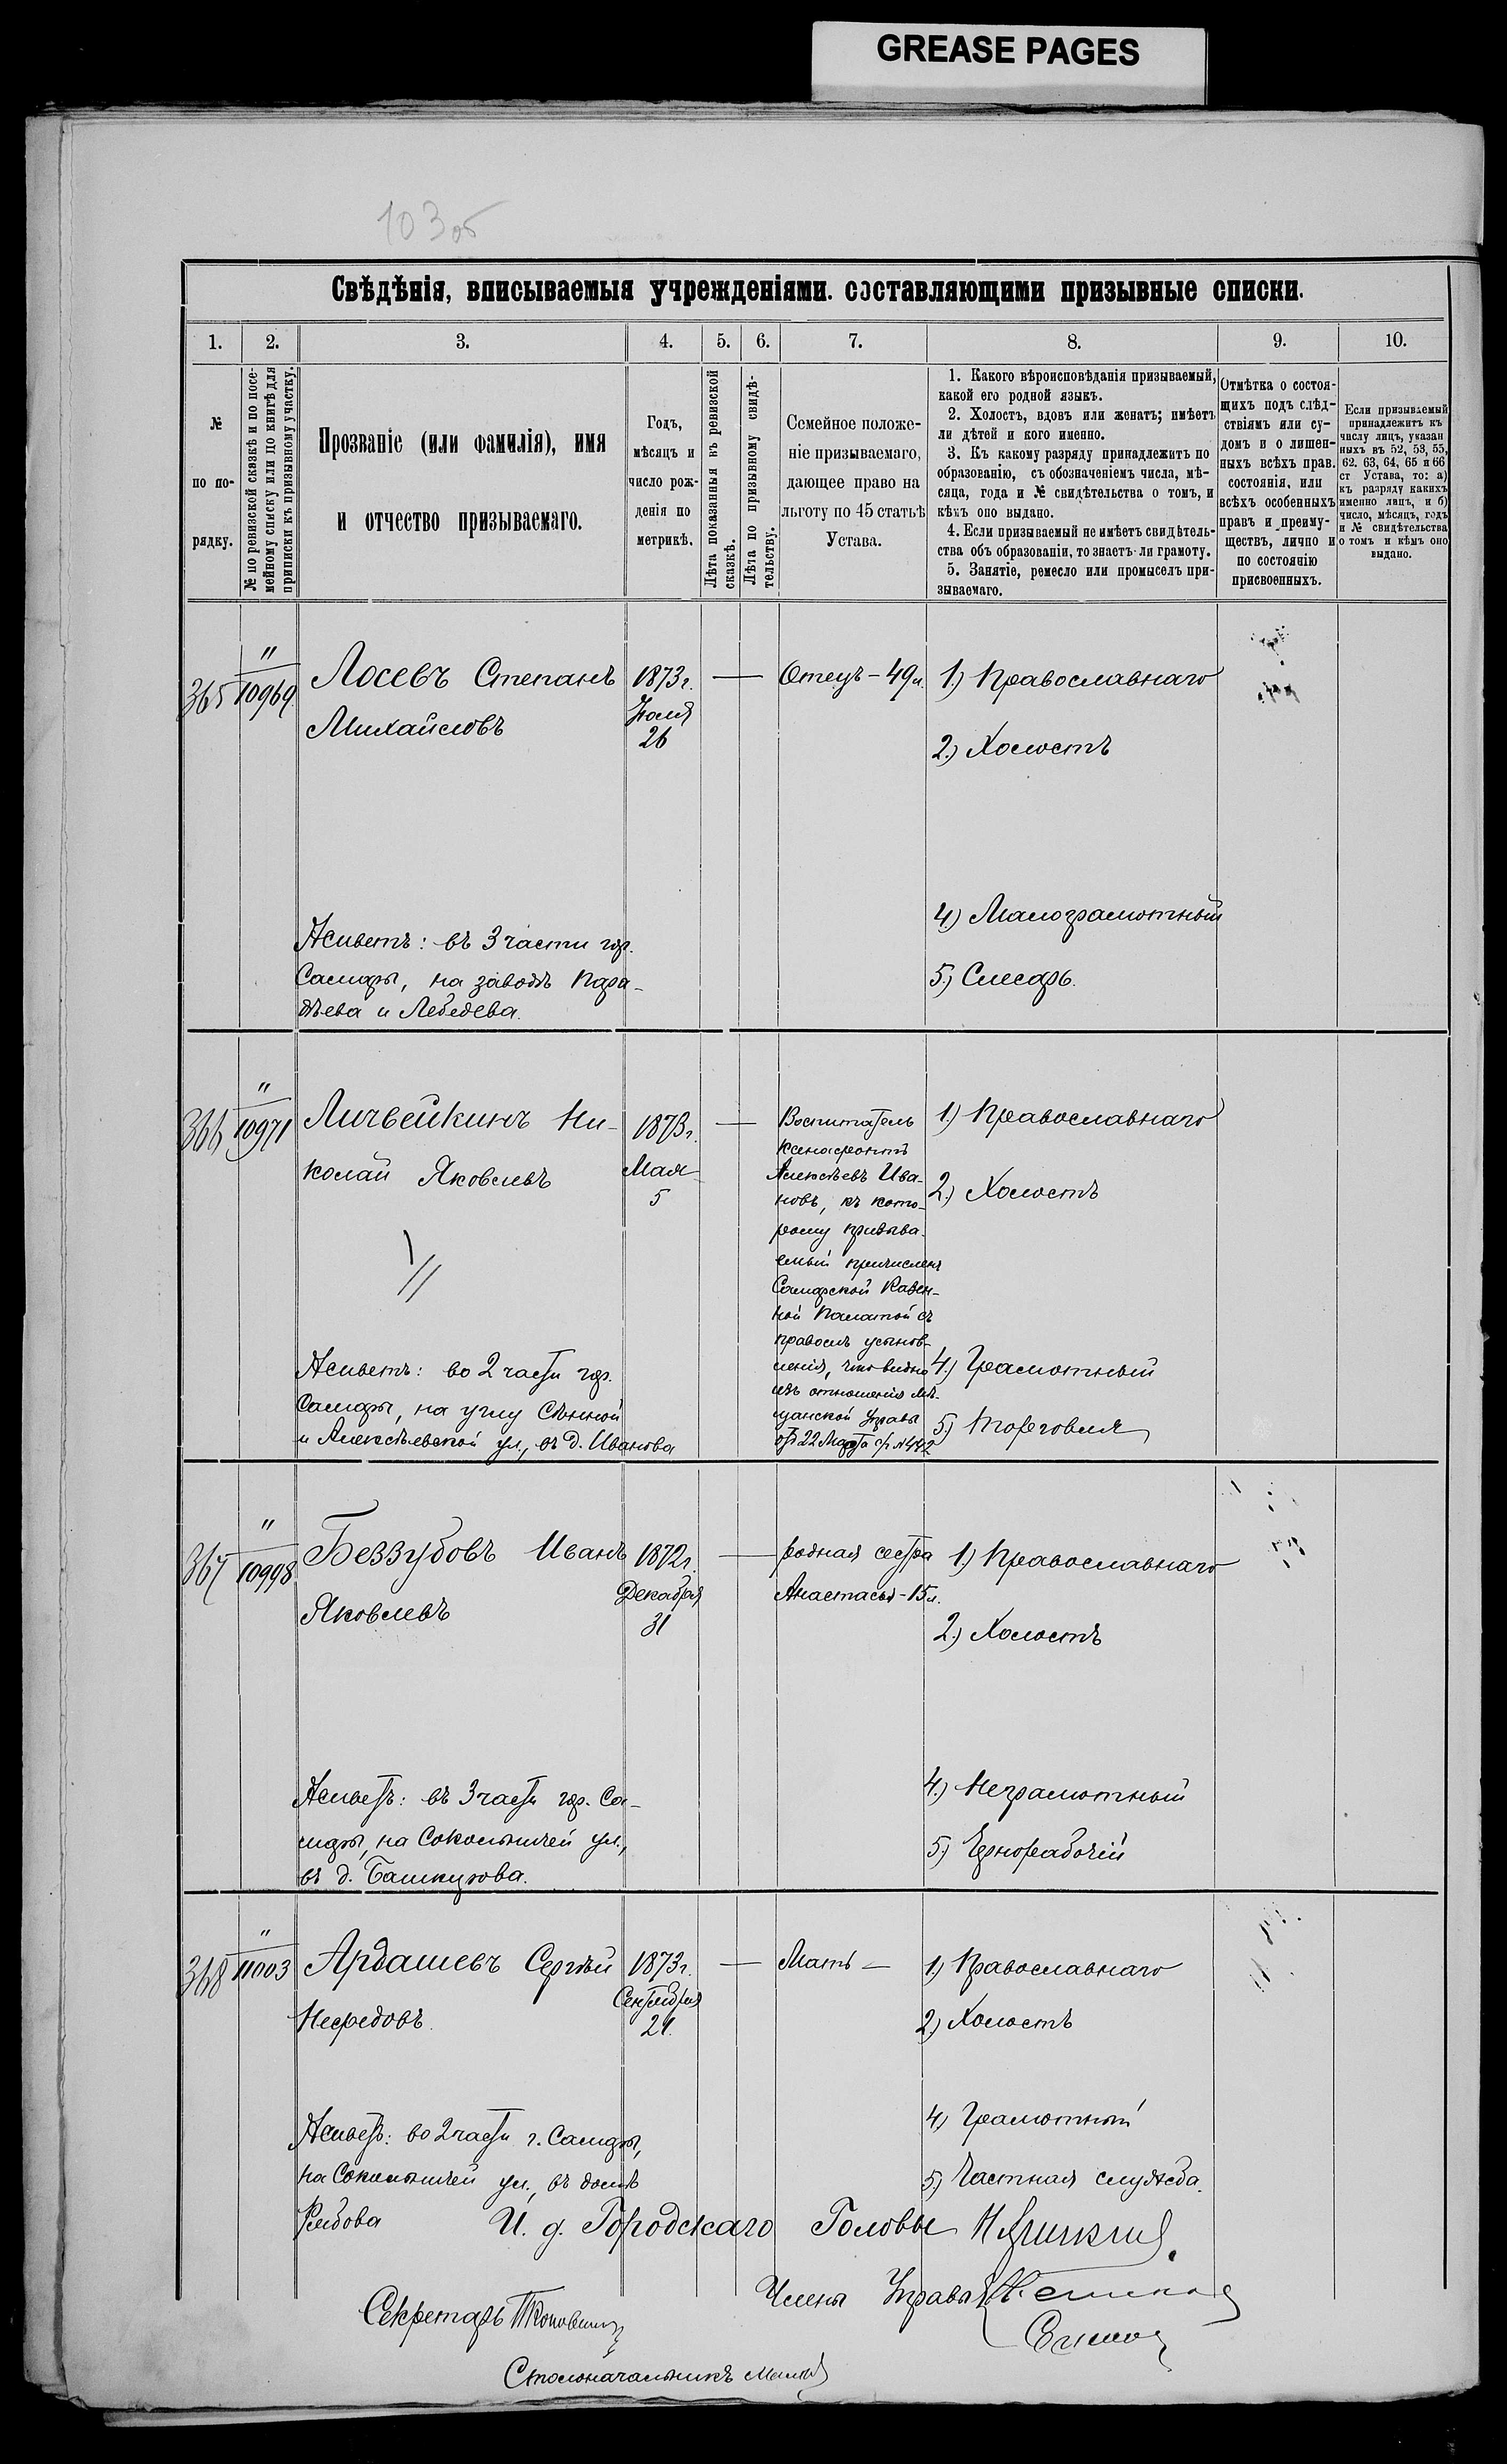 GREASE PAGES
103 об
Свѣдѣнія, вписываемыя учрежденіями. составляющими призывные списки.
1. 2. 3. 4. 5. 6. 7. 8. 9. 10.
№
по по-
рядку.
№ по ревизской сказкѣ и по посе-
мейному списку или по книгѣ для
приписки къ призывному участку.
Прозваніе (или фамилія), имя
и отчество призываемаго.
Годъ,
мѣсяцъ и
число рож-
денія по
метрикѣ.
Лѣта показанныя въ ревизской
сказкѣ.
Лѣта по призывному свидѣ-
тельству.
Семейное положе-
ніе призываемаго,
дающее право на
льготу по 45 статьѣ
Устава.
1. Какого вѣроисповѣданія призываемый,
какой его родной языкъ.
2. Холостъ, вдовъ или женатъ; имѣетъ
ли дѣтей и кого именно.
3. Къ какому разряду принадлежитъ по
образованію, съ обозначеніемъ числа, мѣ-
сяца, года и № свидѣтельства о томъ, и
кѣмъ оно выдано.
4. Если призываемый не имѣетъ свидѣтель-
ства объ образованіи, то знаетъ-ли грамоту.
5. Занятіе, ремесло или промыселъ при-
зываемаго.
Отмѣтка о состоя-
щихъ подъ слѣд-
ствіямъ или су-
домъ и о лишен-
ныхъ всѣхъ прав.
состоянія, или
всѣхъ особенныхъ
правъ и преиму-
ществъ, лично и
по состоянію
присвоенныхъ.
Если призываемый
принадлежитъ къ
числу лицъ, указан
ныхъ въ 52, 53, 55,
62. 63, 64, 65 и 66
ст Устава, то: а)
къ разряду какихъ
именно лицъ, и б)
число, мѣсяцъ, годъ
и № свидѣтельства
о томъ и кѣмъ оно
выдано.
365
"
10969
Лосевъ Степанъ
Михайловъ
1873 г.
Іюля
26
—
Отецъ – 49 л.
1) Православнаго
2.) Холостъ
4) Малограмотный
5) Слесарь.
Живетъ: въ 3 части гор.
Самары, на заводѣ Пора-
дѣева и Лебедева.
366
"
10971
Личвейкинъ Ни-
колай Яковлевъ
1873 г.
Мая
5
—
Воспитатель
Ксенофонтъ
Алексѣевъ Ива-
новъ, къ кото-
рому призыва-
емый причисленъ
Самарской Казен-
ной Палатой съ
правомъ усынов-
ленія, что видно
изъ отношенія Мѣ-
щанской Управы
отъ 22 Марта с/г №442
1.) Православнаго
2.) Холостъ
4.) Грамотный
5) Торговля
Живетъ: во 2 части гор.
Самары, на углу Сѣнной
и Алексѣевской ул., въ д. Иванова
367
"
10998
Беззубовъ Иванъ
Яковлевъ
1872 г.
Декабря
31
—
родная сестра
Анастасья – 15 л.
1.) Православнаго
2.) Холостъ
4.) Неграмотный
5) Чернорабочій
Живетъ: въ 3 части гор. Са-
мары, на Сокольничей ул.,
въ д. Башкирова.
368
"
11003
Ардашевъ Сергѣй
Нефедовъ.
1873 г.
Сентября
21.
—
Мать —
1) Православнаго
2) Холостъ
4) Грамотный
5) Частная служба.
Живетъ: во 2 части г. Самары,
на Сокольничей ул., въ домѣ
И. д. Городскаго Головы
Члены Управы
Секретарь
Столоначальникъ